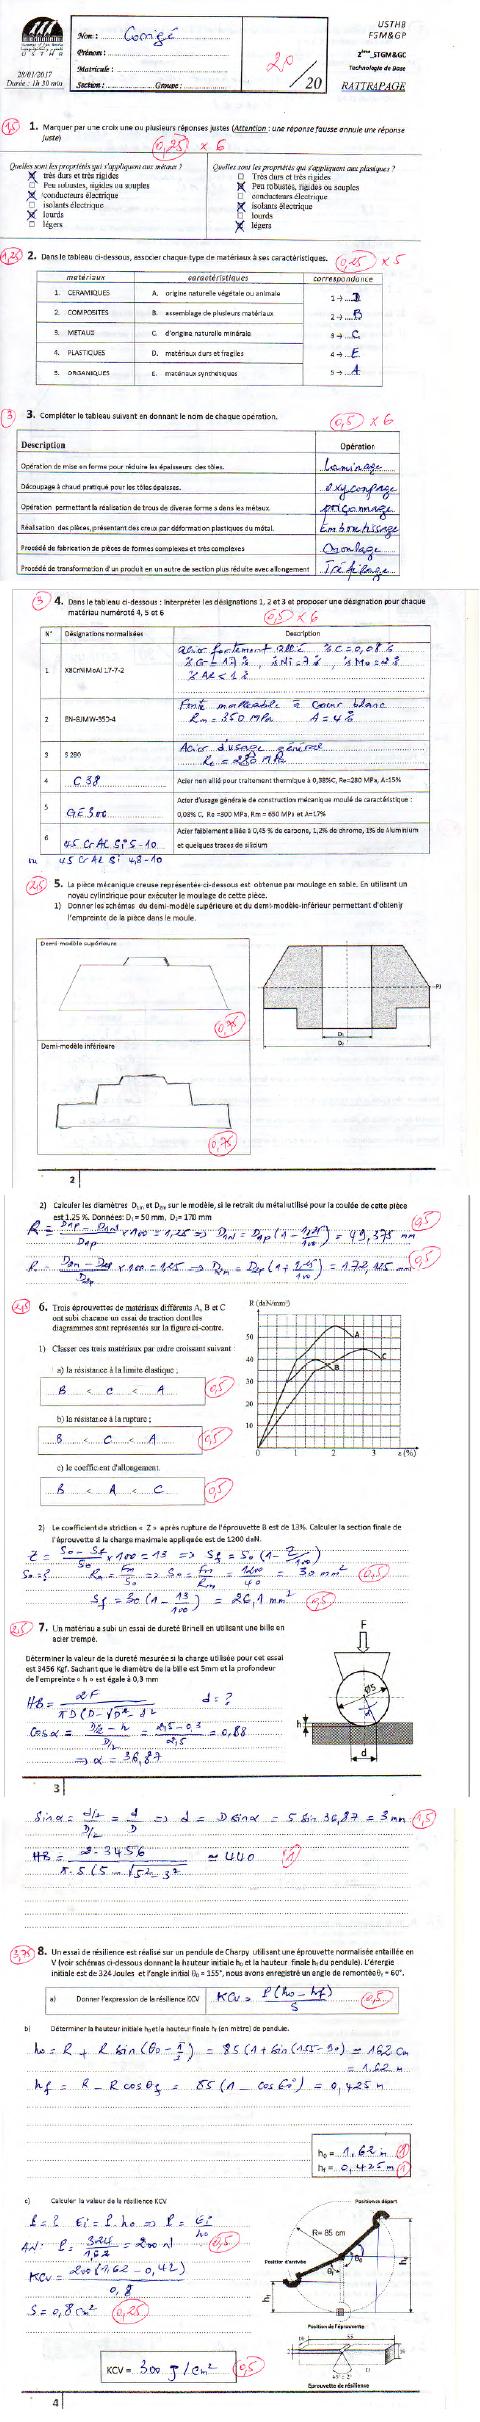 USTHB
FSM&GP
Nom : Corrigé
Prénom :
2ème_STGM&GC
Matricule :
20
/20
Technologie de Base
28/01/2017
Durée : 1h 30 min
Section : Groupe :
RATTRAPAGE
1,5
1. Marquer par une croix une ou plusieurs réponses justes (Attention : une réponse fausse annule une réponse
juste)
0,25 x 6
Quelles sont les propriétés qui s'appliquent aux métaux ?
très durs et très rigides
Peu robustes, rigides ou souples
conducteurs électrique
isolants électrique
lourds
légers
Quelles sont les propriétés qui s'appliquent aux plastiques ?
Très durs et très rigides
Peu robustes, rigides ou souples
conducteurs électrique
isolants électrique
lourds
légers
1,25
2. Dans le tableau ci-dessous, associer chaque type de matériaux à ses caractéristiques.
0,25 x 5
matériaux caractéristiques correspondance
1. CERAMIQUES A. origine naturelle végétale ou animale 1 → D
2. COMPOSITES B. assemblage de plusieurs matériaux 2 → B
3. METAUX C. d'origine naturelle minérale 3 → C
4. PLASTIQUES D. matériaux durs et fragiles 4 → E
5. ORGANIQUES E. matériaux synthétiques 5 → A
3
3. Compléter le tableau suivant en donnant le nom de chaque opération.
0,5 x 6
Description Opération
Opération de mise en forme pour réduire les épaisseurs des tôles. Laminage
Découpage à chaud pratiqué pour les tôles épaisses. oxycoupage
Opération permettant la réalisation de trous de diverse forme s dans les métaux. poinçonnage
Réalisation des pièces, présentant des creux par déformation plastiques du métal. Emboutissage
Procédé de fabrication de pièces de formes complexes et très complexes Moulage
Procédé de transformation d'un produit en un autre de section plus réduite avec allongement Tréfilage
3
4. Dans le tableau ci-dessous : interpréter les désignations 1, 2 et 3 et proposer une désignation pour chaque
matériau numéroté 4, 5 et 6
0,5 x 6
N° Désignations normalisées Description
1 X8CrNiMoAl 17-7-2
Acier fortement allié %C = 0,08 %
% Cr = 17 %, % Ni = 7 %, % Mo = 2 %
% Al < 1 %
2 EN-GJMW-350-4
Fonte malléable à cœur blanc
Rm = 350 MPa A = 4 %
3 S 280
Acier d'usage générale
Re = 280 MPa
4 C 38 Acier non allié pour traitement thermique à 0,38%C, Re=280 MPa, A=15%
5 GE 300 Acier d'usage générale de construction mécanique moulé de caractéristique :
0,08% C, Re =300 MPa, Rm = 650 MPa et A=17%
6 45 Cr Al Si 5-10 Acier faiblement alliée à 0,45 % de carbone, 1,2% de chrome, 1% de Aluminium
et quelques traces de silicium
ou 45 Cr Al Si 4,8-10
2,5
5. La pièce mécanique creuse représentée ci-dessous est obtenue par moulage en sable. En utilisant un
noyau cylindrique pour exécuter le moulage de cette pièce.
1) Donner les schémas du demi-modèle supérieure et du demi-modèle-inférieur permettant d'obtenir
l'empreinte de la pièce dans le moule.
Demi modèle supérieure
0,75
PJ
D1
D2
Demi-modèle inférieure
0,75
2
2) Calculer les diamètres D1m et D2m sur le modèle, si le retrait du métal utilisé pour la coulée de cette pièce
est 1.25 %. Données: D1 = 50 mm, D2= 170 mm
0,5
R = (D1p - D1m)/D1p x 100 = 1,25 => D1m = D1p (1 - 1,25/100) = 49,375 mm
0,5
R = (D2m - D2p)/D2p x 100 = 1,25 => D2m = D2p (1 + 1,25/100) = 172,125 mm
2,5
6. Trois éprouvettes de matériaux différents A, B et C
ont subi chacune un essai de traction dont les
diagrammes sont représentés sur la figure ci-contre.
1) Classer ces trois matériaux par ordre croissant suivant :
a) la résistance à la limite élastique ;
B < C < A
0,5
b) la résistance à la rupture ;
B < C < A
0,5
c) le coefficient d'allongement.
B < A < C
0,5
R (daN/mm²)
50
40
30
20
10
A
C
B
0 1 2 3 ε (%)
2) Le coefficient de striction « Z » après rupture de l'éprouvette B est de 13%. Calculer la section finale de
l'éprouvette si la charge maximale appliquée est de 1200 daN.
Z = (S0 - Sf)/S0 x 100 = 13 => Sf = S0 (1 - Z/100)
S0 = ? Rm = Fm/S0 => S0 = Fm/Rm = 1200/40 = 30 mm²
0,5
Sf = 30 (1 - 13/100) = 26,1 mm²
0,5
2,5
7. Un matériau a subi un essai de dureté Brinell en utilisant une bille en
acier trempé.
Déterminer la valeur de la dureté mesurée si la charge utilisée pour cet essai
est 3456 Kgf. Sachant que le diamètre de la bille est 5mm et la profondeur
de l'empreinte « h » est égale à 0,3 mm
HB = 2F/(π D (D - √D² - d²)) d = ?
Cos α = (D/2 - h)/(D/2) = (2,5 - 0,3)/2,5 = 0,88
=> α = 36,87
F
Ø5
α
h
d
3
Sin α = (d/2)/(D/2) = d/D => d = D sin α = 5 sin 36,87 = 3 mm
1,5
HB = 2 · 3456/(π · 5 (5 - √5² - 3²)) ≃ 440
1
3,75
8. Un essai de résilience est réalisé sur un pendule de Charpy utilisant une éprouvette normalisée entaillée en
V (voir schémas ci-dessous donnant la hauteur initiale h0 et la hauteur finale hf du pendule). L'énergie
initiale est de 324 Joules et l'angle initial θ0 = 155°, nous avons enregistré un angle de remontée θf = 60°.
a) Donner l'expression de la résilience KCV KCV = P (h0 - hf)/S
0,5
b) Déterminer la hauteur initiale h0 et la hauteur finale hf (en mètre) de pendule.
h0 = R + R sin (θ0 - π/2) = 85 (1 + sin (155 - 90) = 162 cm
= 1,62 m
hf = R - R cos θf = 85 (1 - cos 60°) = 0,425 m
h0 = 1,62 m 1
hf = 0,425 m 1
c) Calculer la valeur de la résilience KCV
P = ? Ei = P · h0 => P = Ei/h0
AN : P = 324/1,62 = 200 N
0,5
KCV = 200 (1,62 - 0,42)/0,8
S = 0,8 cm²
0,25
KCV = 300 J/cm²
0,5
Position de départ
R= 85 cm
Position d'arrivée
θ0
θf
h0
hf
Position de l'éprouvette
Eprouvette de résilience
4